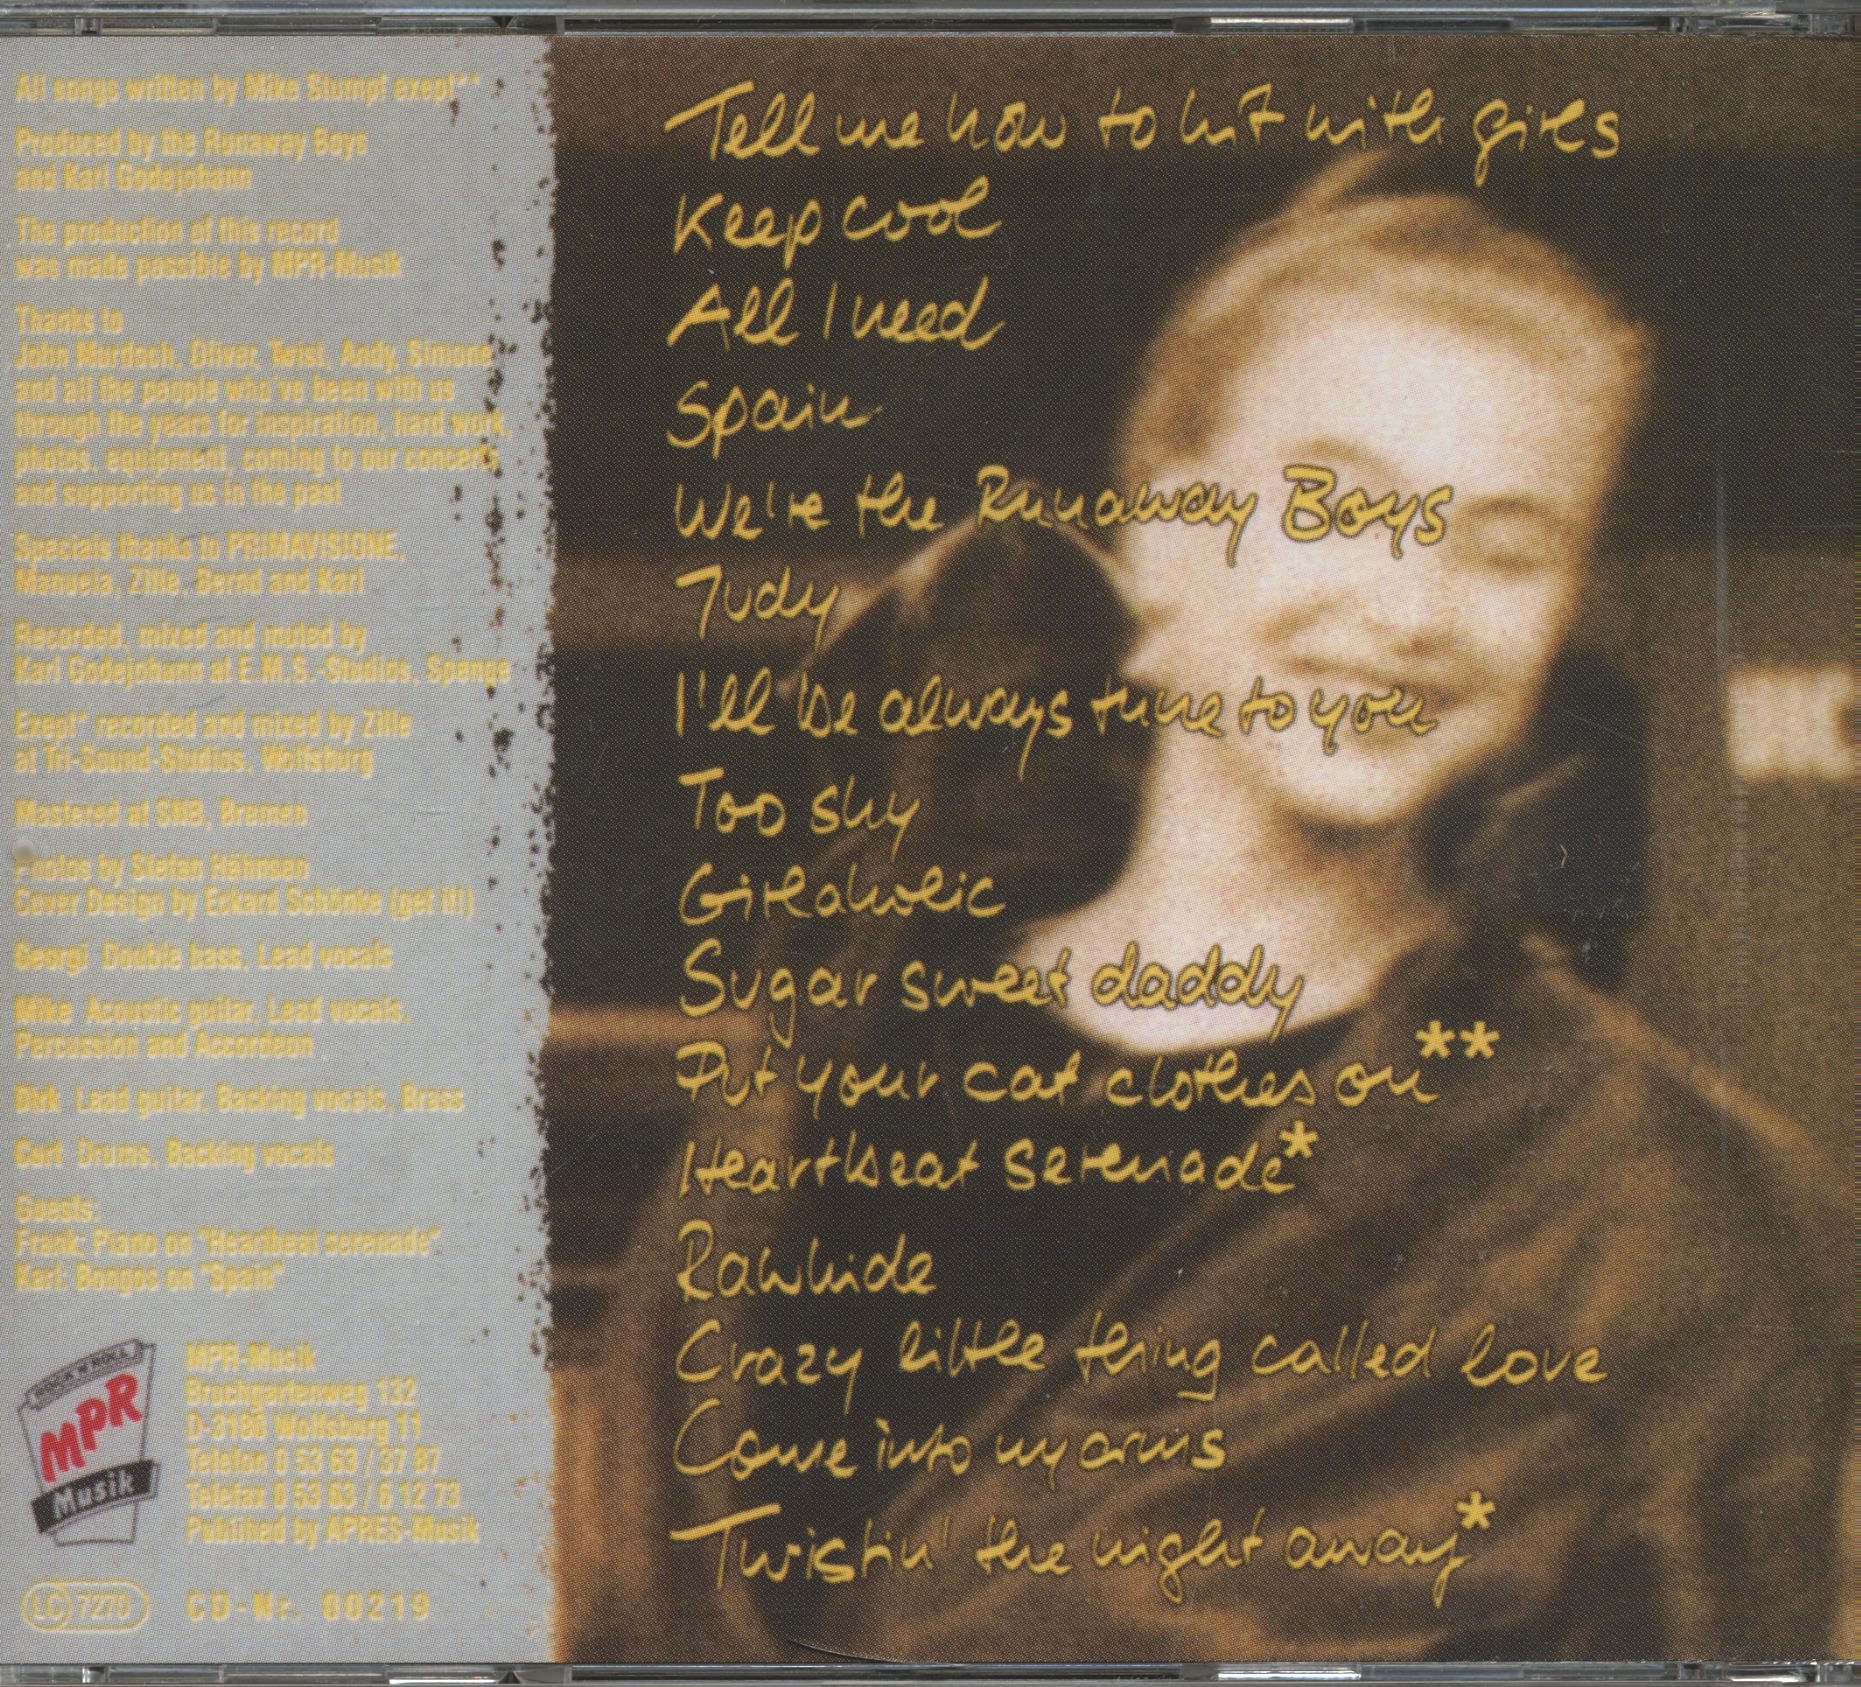 All songs written by Mike Stumpf exept**
Produced by the Runaway Boys
and Karl Godejohann
The production of this record
was made possible by MPR-Musik
Thanks to
John Murdoch, Oliver, Twist, Andy, Simone
and all the people who've been with us
through the years for inspiration, hard work,
photos, equipment, coming to our concerts
and supporting us in the past
Specials thanks to PRIMAVISIONE,
Manuela, Zille, Bernd and Karl
Recorded, mixed and muted by
Karl Godejohann at E.M.S.-Studios, Spenge
Exept* recorded and mixed by Zille
at Tri-Sound-Studios, Wolfsburg
Mastered at SNB, Bremen
Photos by Stefan Hähnsen
Cover Design by Eckard Schönke (get it!)
Georgi Double bass, Lead vocals
Mike Acoustic guitar, Lead vocals,
Percussion and Accordeon
Dirk Lead guitar, Backing vocals, Brass
Curt Drums, Backing vocals
Guests:
Frank: Piano on "Heartbeat serenade"
Karl: Bongos on "Spain"
ROCK'N'ROLL
MPR
Musik
MPR-Musik
Bruchgartenweg 132
D-3180 Wolfsburg 11
Telefon 0 53 63 / 37 87
Telefax 0 53 63 / 6 12 73
Published by APRES-Musik
LC 7270
CD-Nr. 00219
Tell me how to hit with girls
Keep cool
All I need
Spain
We're the Runaway Boys
Judy
I'll be always true to you
Too shy
Girlaholic
Sugar sweet daddy
Put your cat clothes on**
Heartbeat serenade*
Rawhide
Crazy little thing called love
Come into my arms
Twistin' the night away*